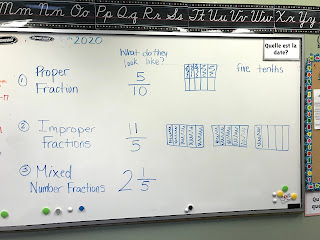 Mm Nn Oo Pp Qq Rr Ss Tt Uu Vv Ww Xx Yy
2020
Quelle est la
date?
What do they
look like?
① Proper
Fraction
5
10
five tenths
② Improper
Fractions
11
5
③ Mixed
Number Fractions
2 1
5